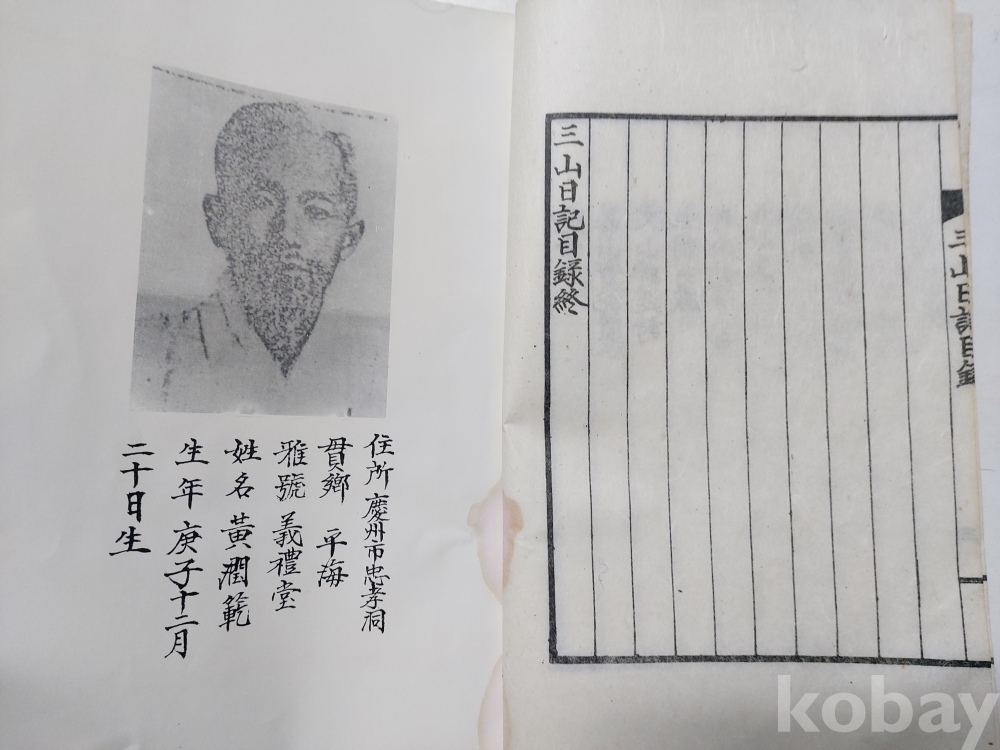 三山日記目錄
三山日記目錄終
住所 慶州市忠孝洞
貫鄉 平海
雅號 義禮堂
姓名 黃潤範
生年 庚子十二月
二十日生
kobay